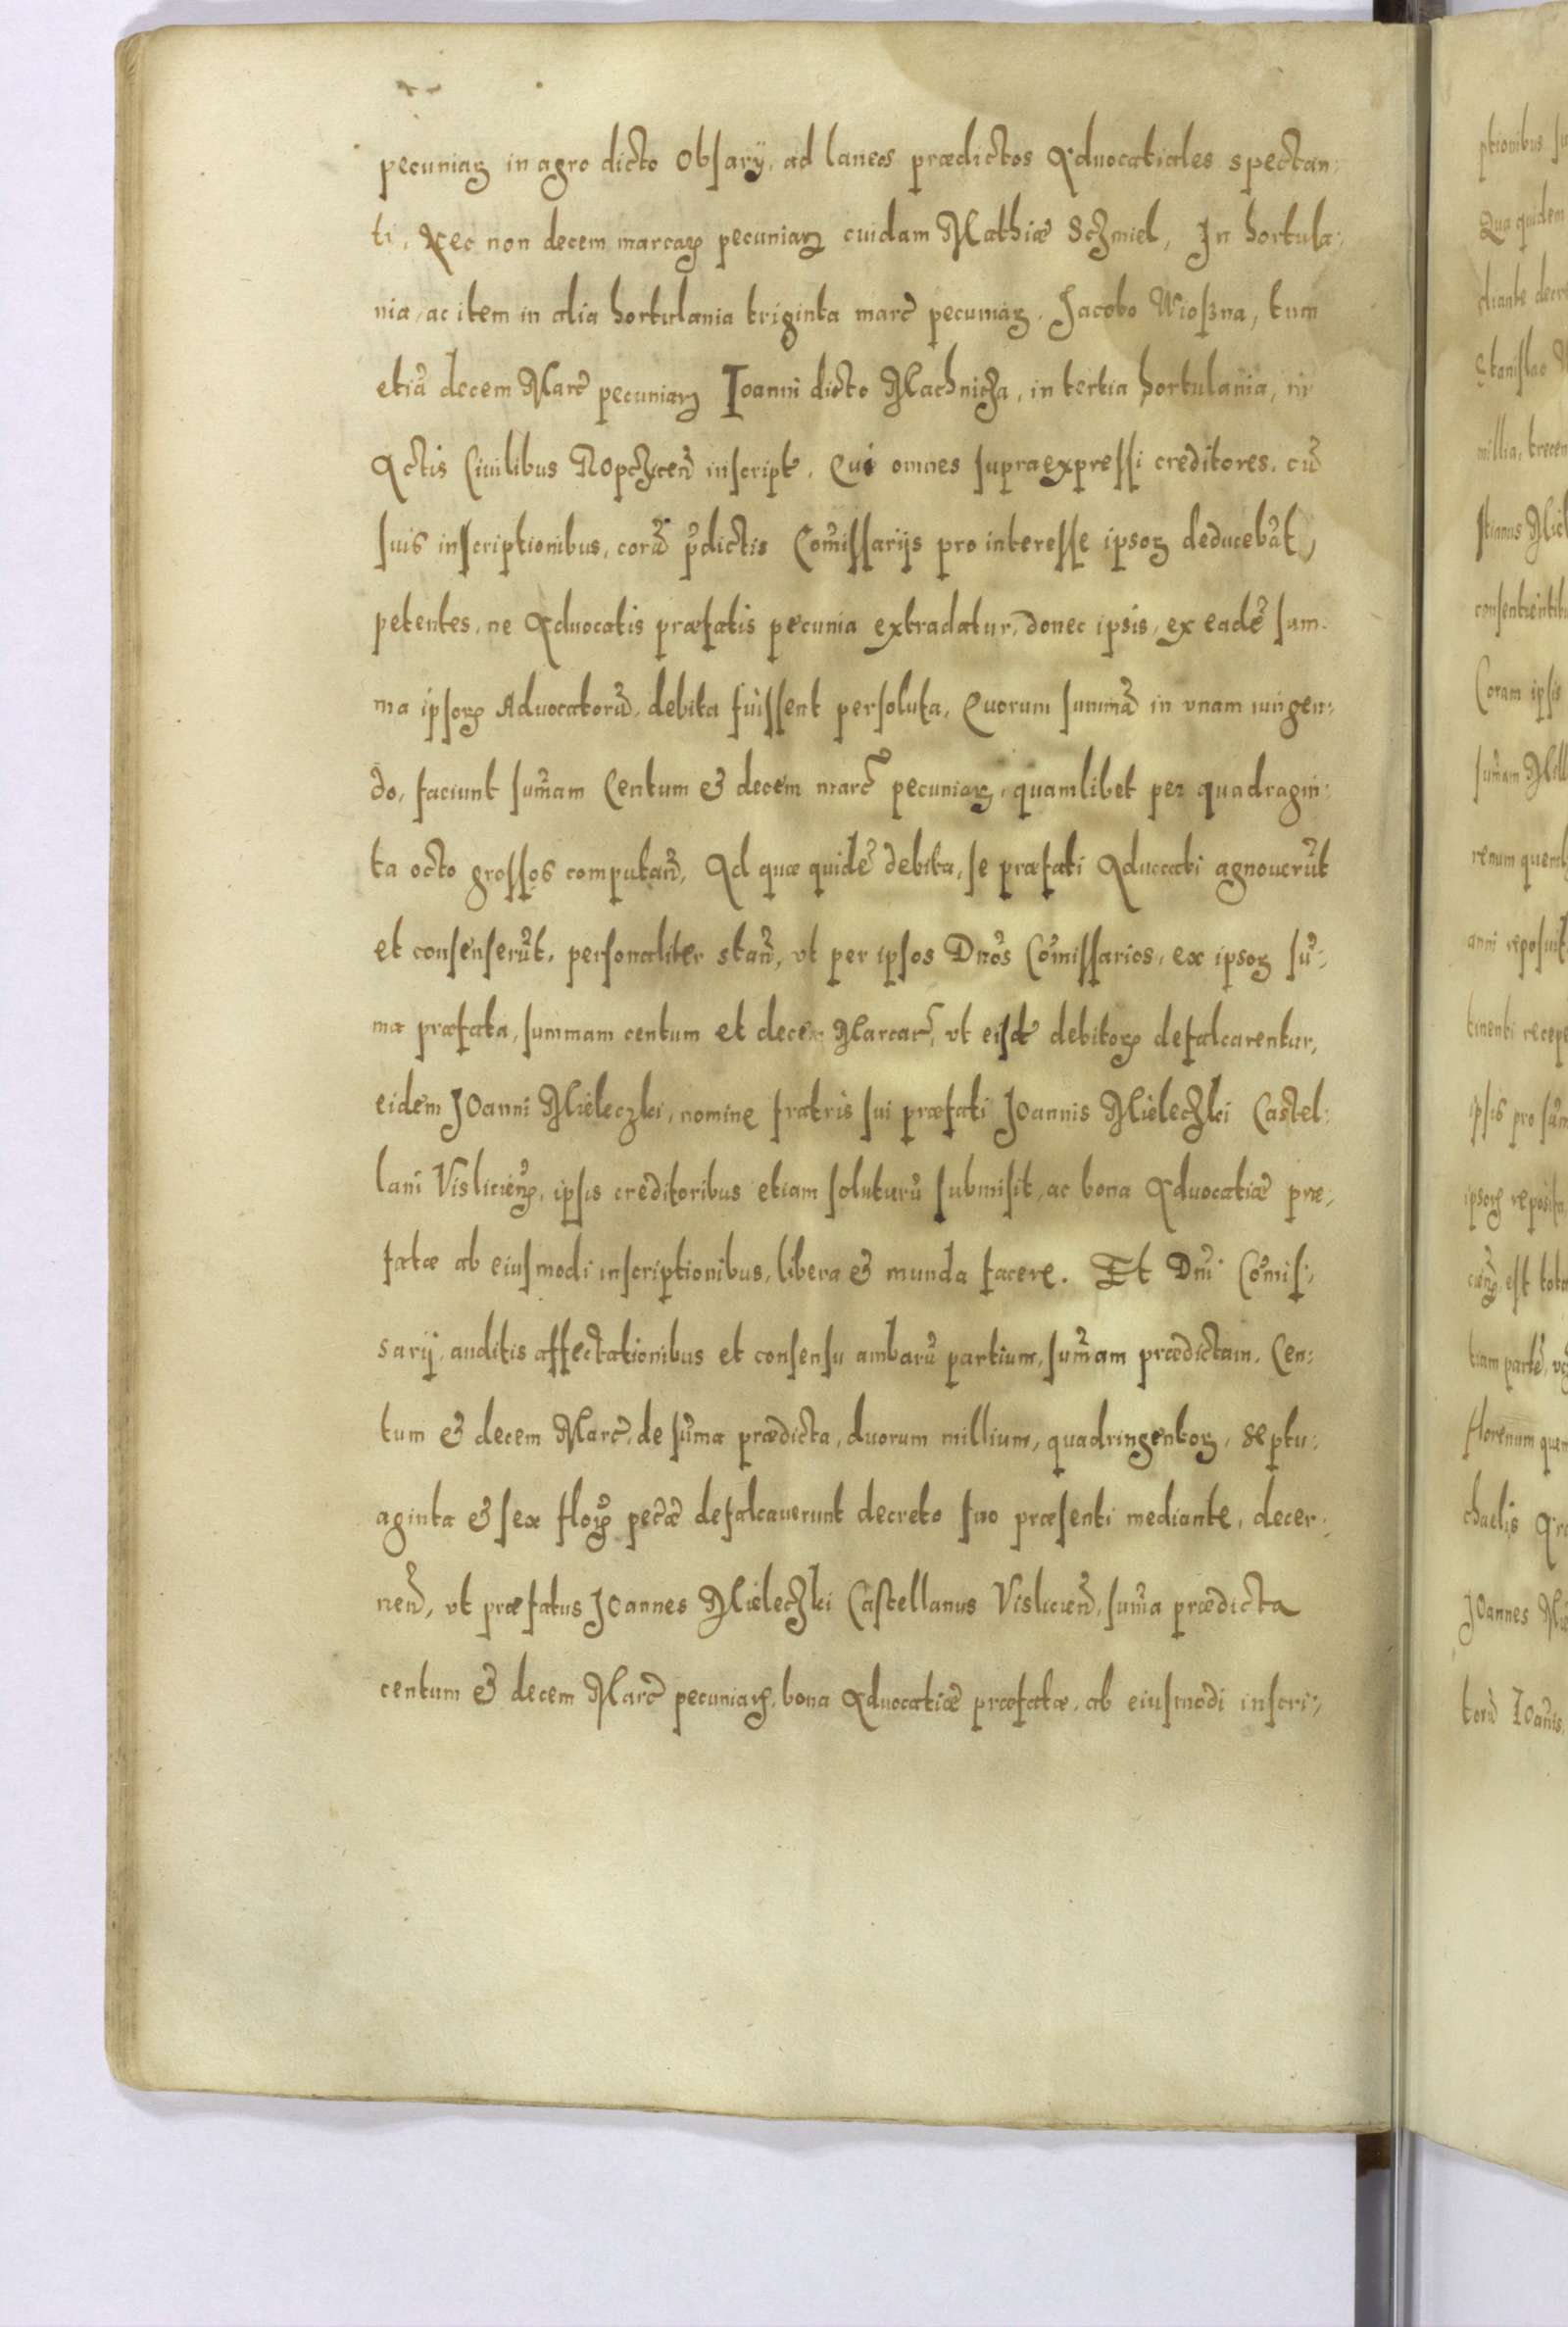 pecuniaꝝ in agro dicto Obſary, ad laneos prædictos Aduocatiales spectan:
ti, Nec non decem marcaꝝ pecuniaꝝ cuidam Mathiæ Schmiel, In hortula:
nia, ac item in alia hortulania triginta marc̃ pecuniaꝝ. Jacobo Wioſna, tum
etiã decem Marc̃ pecuniaꝝ Ioanni dicto Machnicza, in tertia hortulania, in
Actis Ciuilibus Ropczicen̄ inscript̃. Qui omnes ſupraexpreſſi creditores, cũ
ſuis inſcriptionibus, corã p̃dictis Com̃iſſarijs pro intereſſe ipsoꝝ deducebãt,
petentes, ne Aduocatis præfatis pecunia extradatur, donec ipsis, ex eadẽ ſum:
ma ipſoꝝ Aduocatorũ, debita fuiſſent perſoluta, Quorum ſummã in vnam iungen:
do, faciunt ſum̃am Centum & decem marc̃ pecuniaꝝ, quamlibet per quadragin:
ta octo groſſos computan̄, Ad quæ quidẽ debita, ſe præfati Aduocati agnouerũt
et conſenſerũt, perſonaliter stan̄, vt per ipſos Dnõs Com̃iſſarios, ex ipsoꝝ ſũ:
ma præfata, ſummam centum et decem Marcar̃, vt eiſdẽ debitoꝝ defalcarentur,
eidem Joanni Mieleczki, nomine fratris ſui præfati Joannis Mieleczki Castel:
lani Vislicien̄, ipſis creditoribus etiam ſoluturũ ſubmiſit, ac bona Aduocatiæ præ:
fatæ ab eiuſmodi inſcriptionibus, libera & munda facere. Et Dnĩ Com̃iſ:
sarij, auditis affectationibus et conſenſu ambarũ partium, ſum̃am prædictam, Cen:
tum & decem Marc̃, de ſum̃a prædicta, duorum millium, quadringentoꝝ, Septu:
aginta & ſex floꝝ pec̃æ defalcauerunt decreto ſuo præſenti mediante, decer:
nen̄, vt præfatus Joannes Mieleczki Caſtellanus Vislicien̄, ſum̃a prædicta
centum & decem Marc̃ pecuniaꝝ, bona Aduocatiæ præfatæ, ab eiuſmodi inſcri: